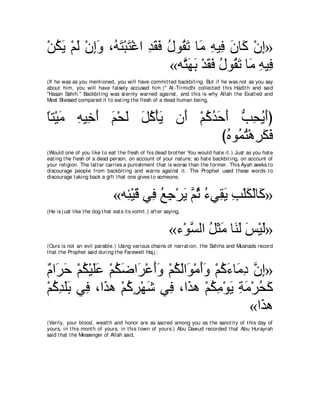 «إِنْ كَانَ فِيهِ مَا تَقُولُ فَقَدِ اغْتَبْتَهُ، وَإِنْ لَمْ يَكُنْ
فِيهِ مَا تَقُولُ فَقَدْ بَهَتَّه»
(If he was as you mentioned, you will have committed backbiting. But if he was not as you say
about him, you will have falsely accused him.)" At-Tirmidhi collected this Hadith and said
"Hasan Sahih." Backbiting was sternly warned against, and this is why Allah the Exalted and
Most Blessed compared it to eating the flesh of a dead human being,
(أَيُحِبُّ أَحَدُكُمْ أَن يَأْكُلَ لَحْمَ أَخِيهِ مَيْتاً
فَكَرِهْتُمُوهُ)
(Would one of you like to eat the flesh of his dead brother You would hate it.) Just as you hate
eating the flesh of a dead person, on account of your nature; so hate backbiting, on account of
your religion. The latter carries a punishment that is worse than the former. This Ayah seeks to
discourage people from backbiting and warns against it. The Prophet used these words to
discourage taking back a gift that one gives to someone,
«كَالْكَلْبِ يَقِيءُ ثُمَّ يَرْجِعُ فِي قَيْئِه»
(He is just like the dog that eats its vomit.) after saying,
«لَيْسَ لَنَا مَثَلُ السَّوْء»
(Ours is not an evil parable.) Using various chains of narration, the Sahihs and Musnads record
that the Prophet said during the Farewell Hajj:
«إِنَّ دِمَاءَكُمْ وَأَمْوَالَكُمْ وَأَعْرَاضَكُمْ عَلَيْكُمْ حَرَامٌ
كَحُرْمَةِ يَوْمِكُمْ هَذَا، فِي شَهْرِكُمْ هَذَا، فِي بَلَدِكُمْ
هَذَا»
(Verily, your blood, wealth and honor are as sacred among you as the sanctity of this day of
yours, in this month of yours, in this town of yours.) Abu Dawud recorded that Abu Hurayrah
said that the Messenger of Allah said,